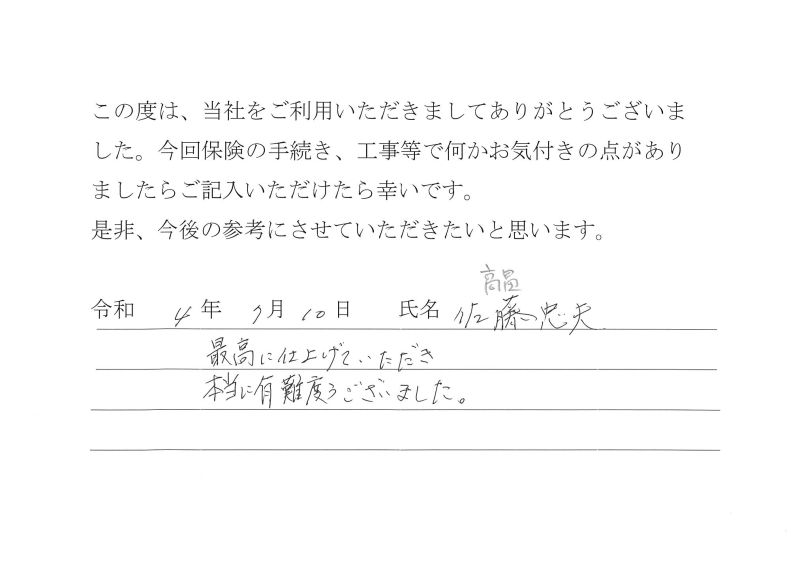 この度は、当社をご利用いただきましてありがとうございま
した。今回保険の手続き、工事等で何かお気付きの点があり
ましたらご記入いただけたら幸いです。
是非、今後の参考にさせていただきたいと思います。
令和 4年 7月 10日 氏名 佐藤忠夫
最高に仕上げていただき
本当に有難度うございました。